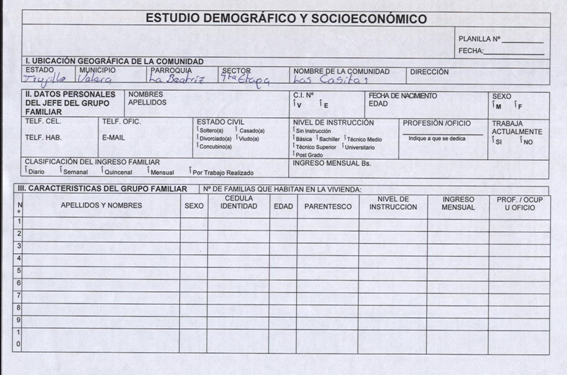 ESTUDIO DEMOGRÁFICO Y SOCIOECONÓMICO
PLANILLA Nº
FECHA:
I. UBICACIÓN GEOGRÁFICA DE LA COMUNIDAD
ESTADO MUNICIPIO PARROQUIA SECTOR NOMBRE DE LA COMUNIDAD DIRECCIÓN
Trujillo Valera La Beatriz 7ma Etapa Las Casitas
II. DATOS PERSONALES DEL JEFE DEL GRUPO FAMILIAR
NOMBRES
APELLIDOS
C.I. Nº
V E
FECHA DE NACIMIENTO
EDAD
SEXO
M F
TELF. CEL. TELF. OFIC.
TELF. HAB. E-MAIL
ESTADO CIVIL
Soltero(a) Casado(a)
Divorciado(a) Viudo(a)
Concubino(a)
NIVEL DE INSTRUCCIÓN
Sin Instrucción
Básica Bachiller Técnico Medio
Técnico Superior Universitario
Post Grado
PROFESIÓN /OFICIO
Indique a que se dedica
TRABAJA ACTUALMENTE
SI NO
CLASIFICACIÓN DEL INGRESO FAMILIAR
Diario Semanal Quincenal Mensual Por Trabajo Realizado
INGRESO MENSUAL Bs.
III. CARACTERISTICAS DEL GRUPO FAMILIAR Nº DE FAMILIAS QUE HABITAN EN LA VIVIENDA:
Nº APELLIDOS Y NOMBRES SEXO CEDULA IDENTIDAD EDAD PARENTESCO NIVEL DE INSTRUCCION INGRESO MENSUAL PROF. / OCUP U OFICIO
1
2
3
4
5
6
7
8
9
1
0